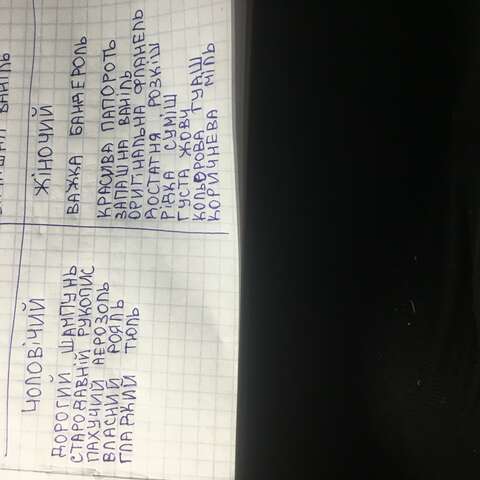 ВАНІЛЬ
ЧОЛОВІЧИЙ
ДОРОГИЙ ШАМПУНЬ
СТАРОДАВНІЙ РУКОПИС
ПАХУЧИЙ АЕРОЗОЛЬ
ВЛАСНИЙ РОЯЛЬ
ГЛАДКИЙ ТЮЛЬ
ЖІНОЧИЙ
ВАЖКА БАНДЕРОЛЬ
КРАСИВА ПАПОРОТЬ
ЗАПАШНА ВАНІЛЬ
ОРИГІНАЛЬНА ФЛАНЕЛЬ
ДОСТАТНЯ РОЗКІШ
РІДКА СУМІШ
ГУСТА ЖОВЧ
КОЛЬОРОВА ГУАШ
КОРИЧНЕВА МІЛЬ